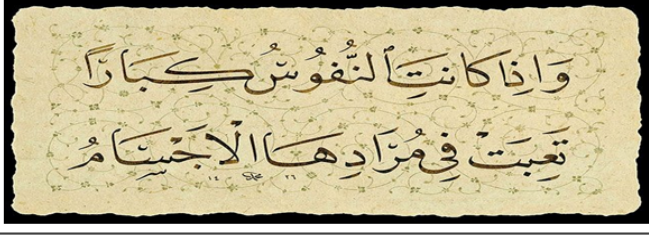 وَإِذَا كَانَتِ ٱلنُّفُوسُ كِبَارًا
تَعِبَتْ فِي مُرَادِهَا الْأَجْسَامُ